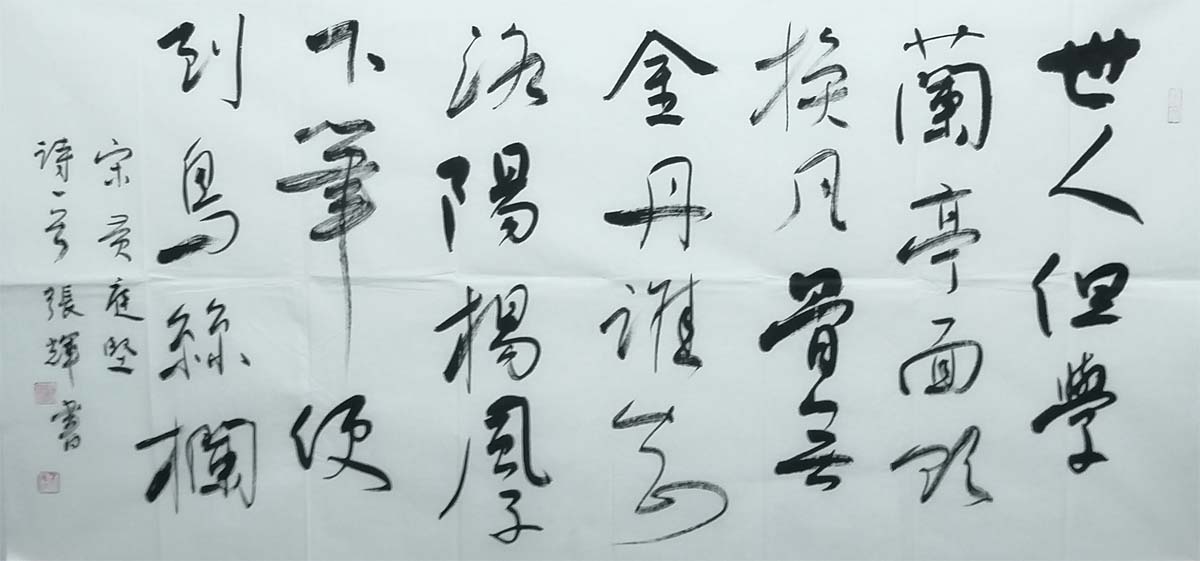 世人但學
蘭亭面欲
換凡骨無
金丹誰知
洛陽楊風子
下筆便
到烏絲欄
宋黃庭堅
詩一首 張輝書